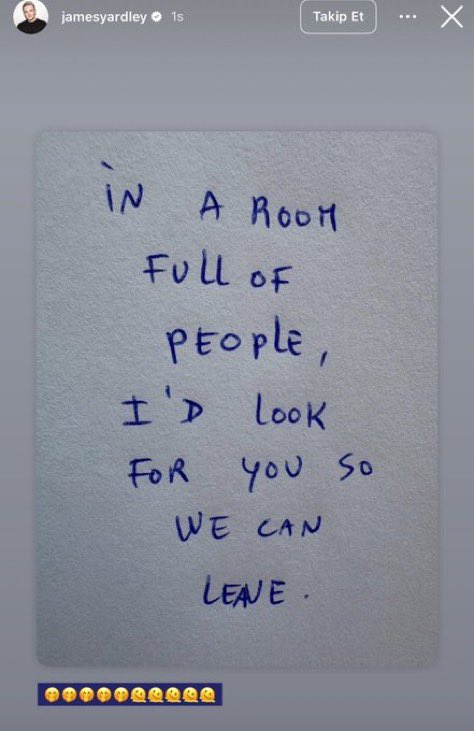 jamesyardley 1s Takip Et
iN A ROOM
FULL OF
PEOPLE,
I'D LOOK
FOR YOU SO
WE CAN
LEAVE.
🤭🤭🤭🤭🤭🫠🫠🫠🫠🫠